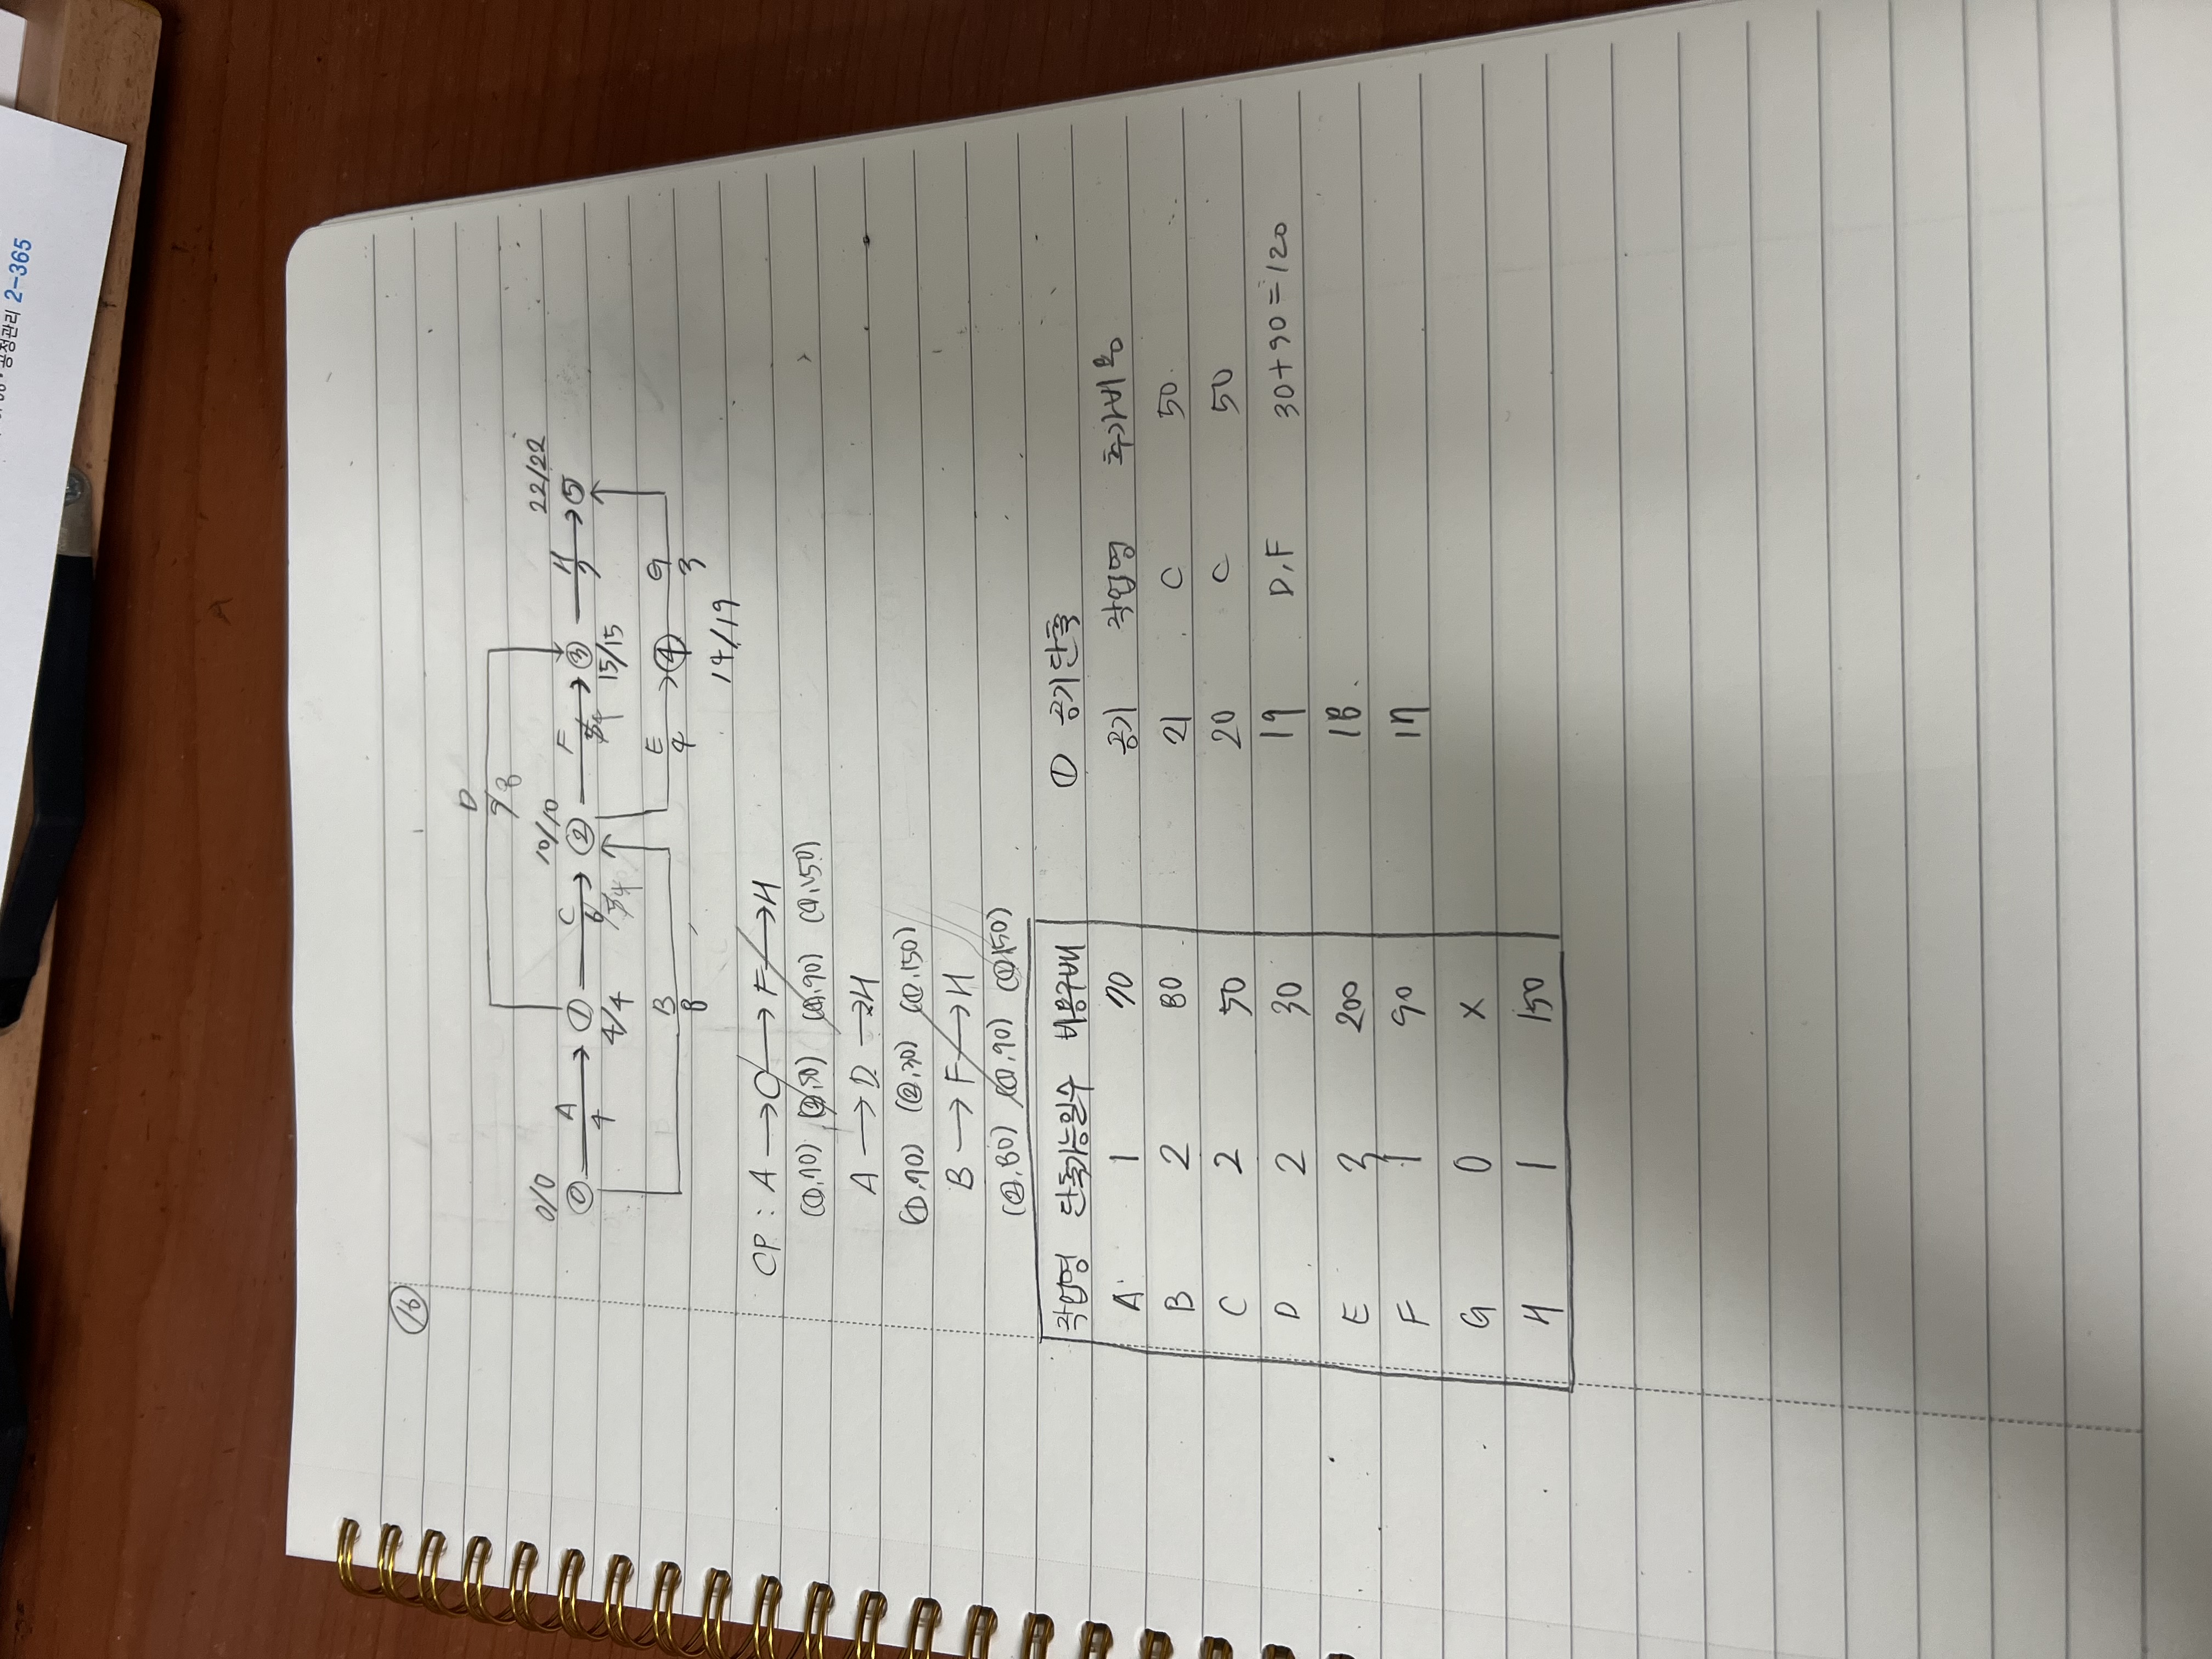 공정관리 2-365
16
D
0/0 10/10 22/22
⓪ A → ① C → ② F → ③ H → ⑤
4 6 7
4/4 15/15
B E → ④ G
8 4 3
14/19
CP : A → C → F → H
(1,70) (2,50) (1,90) (1,150)
A → D → H
(1,70) (2,30) (1,150)
B → F → H
(2,80) (1,90) (1,150)
작업명 단축가능일수 비용구배
A 1 70
B 2 80
C 2 50
D 2 30
E 3 200
F 1 90
G 0 X
H 1 150
① 공기단축
공기 작업명 추가비용
21 C 50
20 C 50
19 D,F 30+90=120
18
17